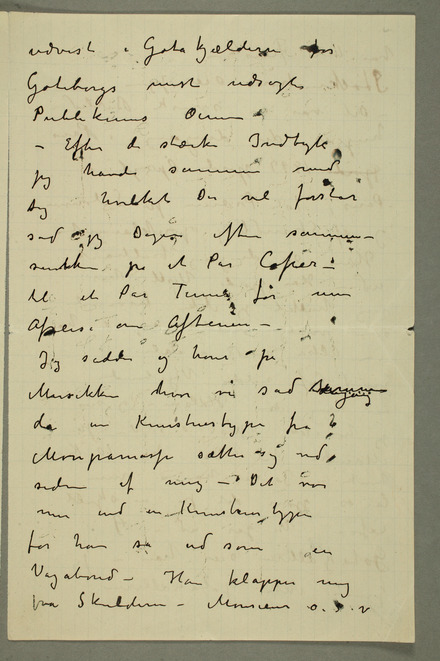 udvist i Gota Kjælderen for
Goteborgs mest udsøgte
Publikums Øine
– Efter de stærke Indtryk
jeg havde sammen med
Dig hvilket De vel forstår
sad jeg Dagen efter sammen-
sunkken på et Par Caféer –
til et Par Timer før min
Afreise om Aftenen –
Jeg sadde og hørte på
Musikken hvor vi sad
da en Kunstnertype fra
Monparnasse sætter sig ved
siden af mig – Det var
mer end en Kunstnertype
for han så ud som en
Vagabond – Han klapper mig
på Skulderen – Monsieur o.s.v